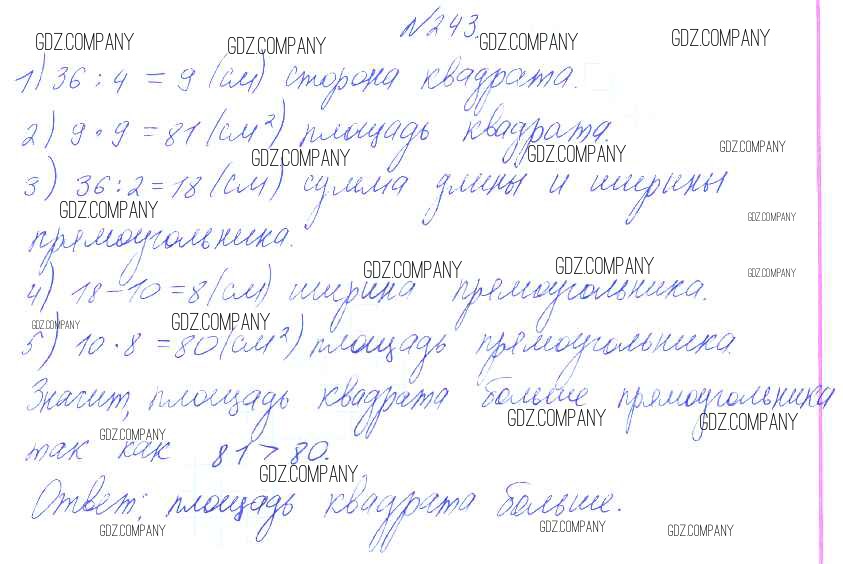 №243.
GDZ.COMPANY GDZ.COMPANY GDZ.COMPANY GDZ.COMPANY
1) 36 : 4 = 9 (см) сторона квадрата.
2) 9 · 9 = 81 (см²) площадь квадрата.
GDZ.COMPANY GDZ.COMPANY GDZ.COMPANY
3) 36 : 2 = 18 (см) сумма длины и ширины
GDZ.COMPANY GDZ.COMPANY
прямоугольника.
GDZ.COMPANY GDZ.COMPANY GDZ.COMPANY
4) 18 - 10 = 8 (см) ширина прямоугольника.
GDZ.COMPANY GDZ.COMPANY
5) 10 · 8 = 80 (см²) площадь прямоугольника.
Значит, площадь квадрата больше прямоугольника
GDZ.COMPANY GDZ.COMPANY GDZ.COMPANY
так как 81 > 80.
GDZ.COMPANY
Ответ: площадь квадрата больше.
GDZ.COMPANY GDZ.COMPANY GDZ.COMPANY